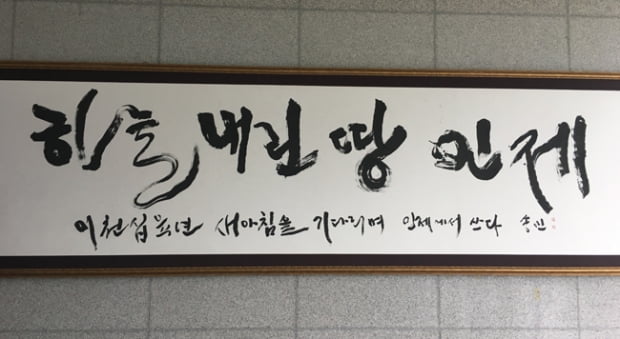 하늘 내린 땅 인제
이천십육년 새아침을 기다리며 인제에서 쓰다 송민